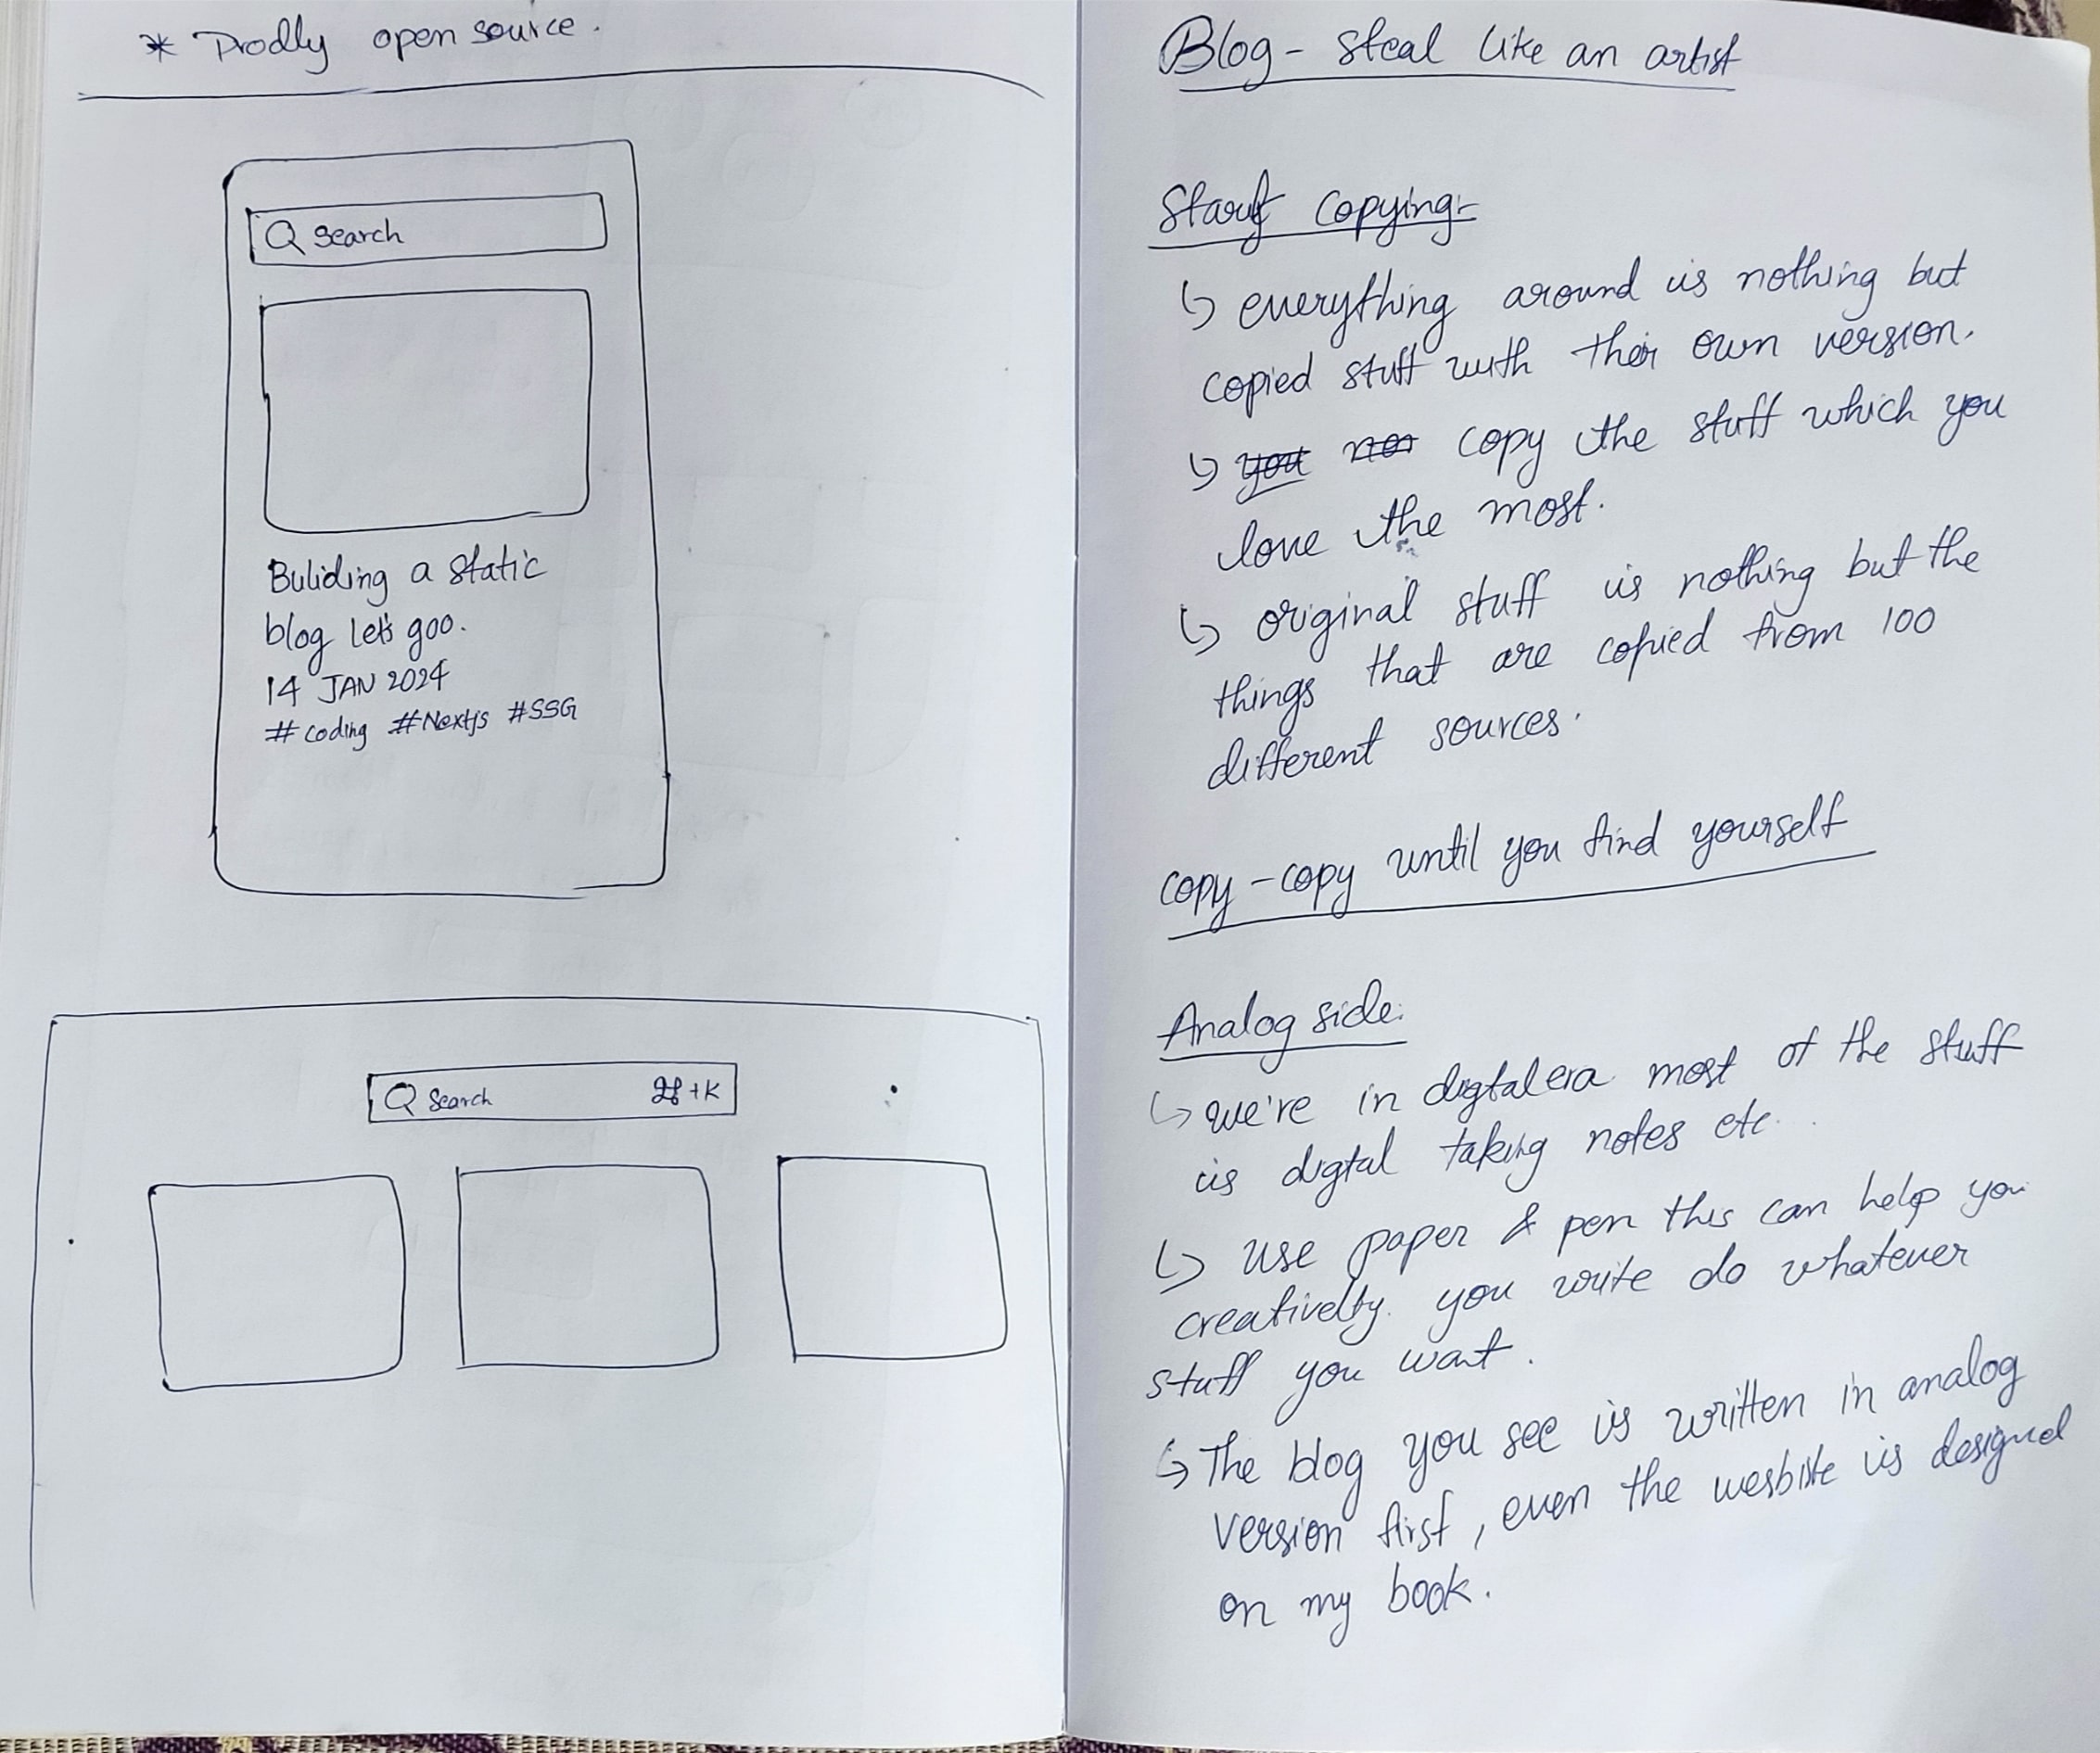 * Prodly open source.
Q Search
Buliding a static
blog let's goo.
14 JAN 2024
# coding #Nextjs #SSG
Q Search ⌘+K
Blog - steal like an artist
Start copying-
↳ everything around is nothing but
copied stuff with their own version.
↳ you copy the stuff which you
love the most.
↳ original stuff is nothing but the
things that are copied from 100
different sources.
copy - copy until you find yourself
Analog side:
↳ we're in digtal era most of the stuff
is digtal taking notes etc..
↳ use paper & pen this can help you
creativelty. you write do whatever
stuff you want.
↳ The blog you see is written in analog
version first, even the wesbite is designed
on my book.